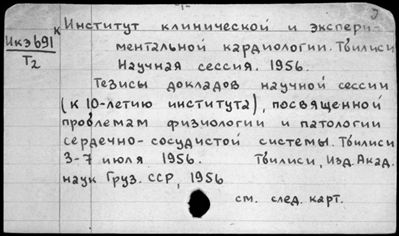 Институт клинической и экспери-
Икэ691
ментальной кардиологии. Тбилиси
Т2
Научная сессия. 1956.
Тезисы докладов научной сессии
(к 10-летию института), посвященной
проблемам физиологии и патологии
сердечно-сосудистой системы. Тбилиси
3-7 июля 1956. Тбилиси, Изд. Акад.
наук Груз. ССР, 1956
см. след. карт.